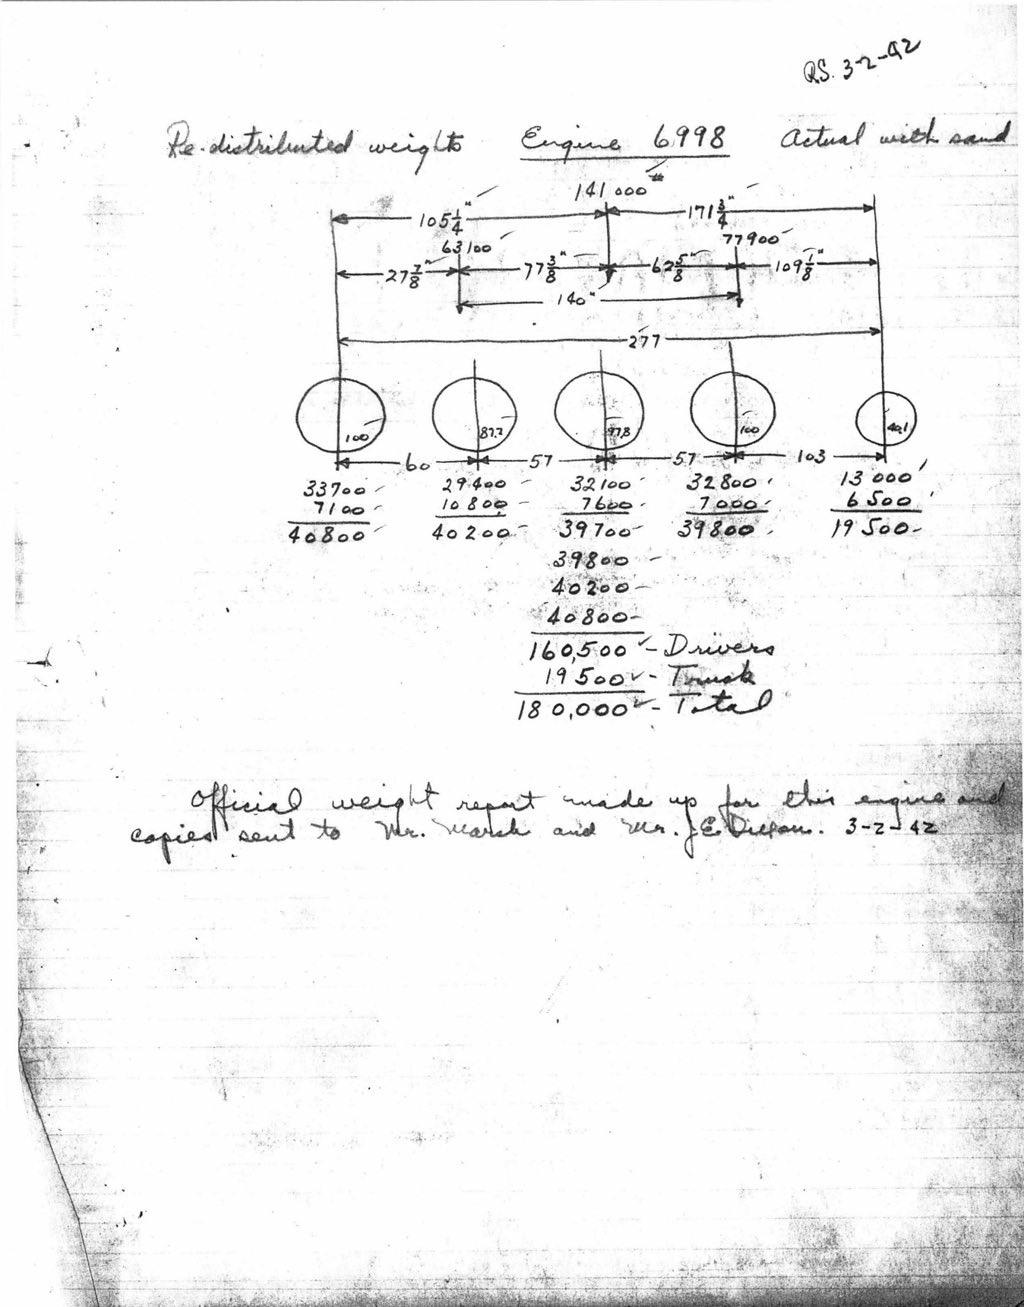 R.S. 3-2-42
Re-distributed weights Engine 6998 Actual with sand
141000#
105 1/4" 171 3/4"
63100 77900
27 7/8" 77 3/8" 62 5/8" 109 1/8"
140"
277
100 87.7 97.8 100 40.1
60 57 57 103
33700 29400 32100 32800 13000
7100 10800 7600 7000 6500
40800 40200 39700 39800 19500
39800
40200
40800
160,500 - Drivers
19500 - Truck
180,000 - Total
Official weight report made up for this engine and
copies sent to Mr. Marsh and Mr. J.E. Dixon. 3-2-42